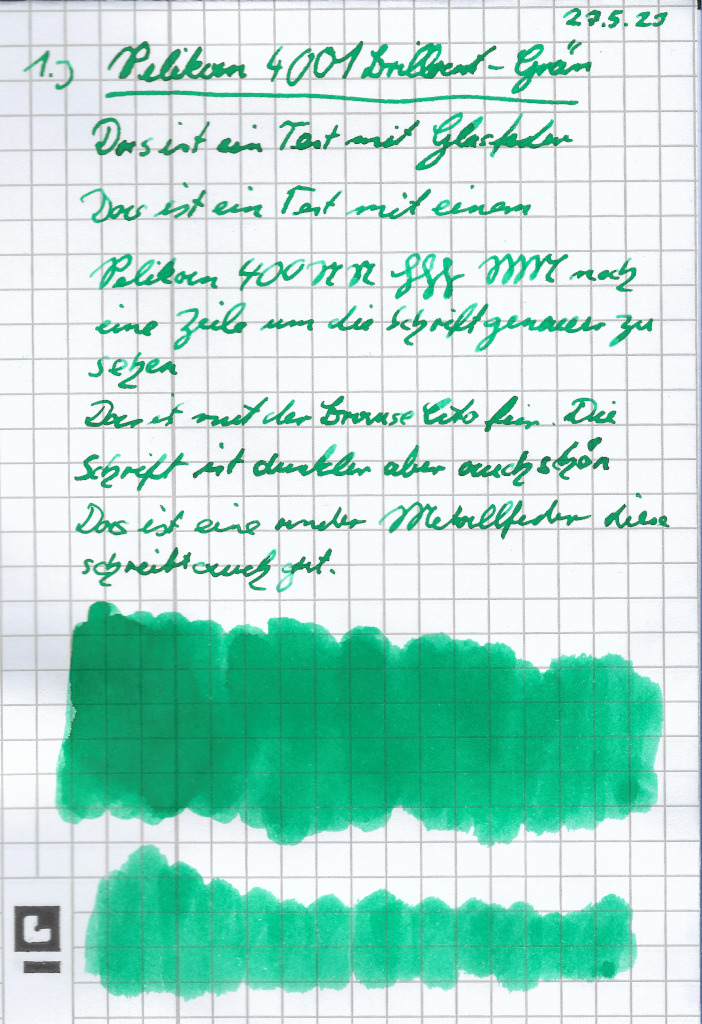 27.5.23
1.) Pelikan 4001 Brillant-Grün
Das ist ein Test mit Glasfeder
Das ist ein Test mit einem
Pelikan 400 nach
eine Zeile um die Schrift genauer zu
sehen
Das ist mit der Brause Cito fein. Die
Schrift ist dunkler aber auch schön
Das ist eine Metallfeder diese
schreibt auch gut.